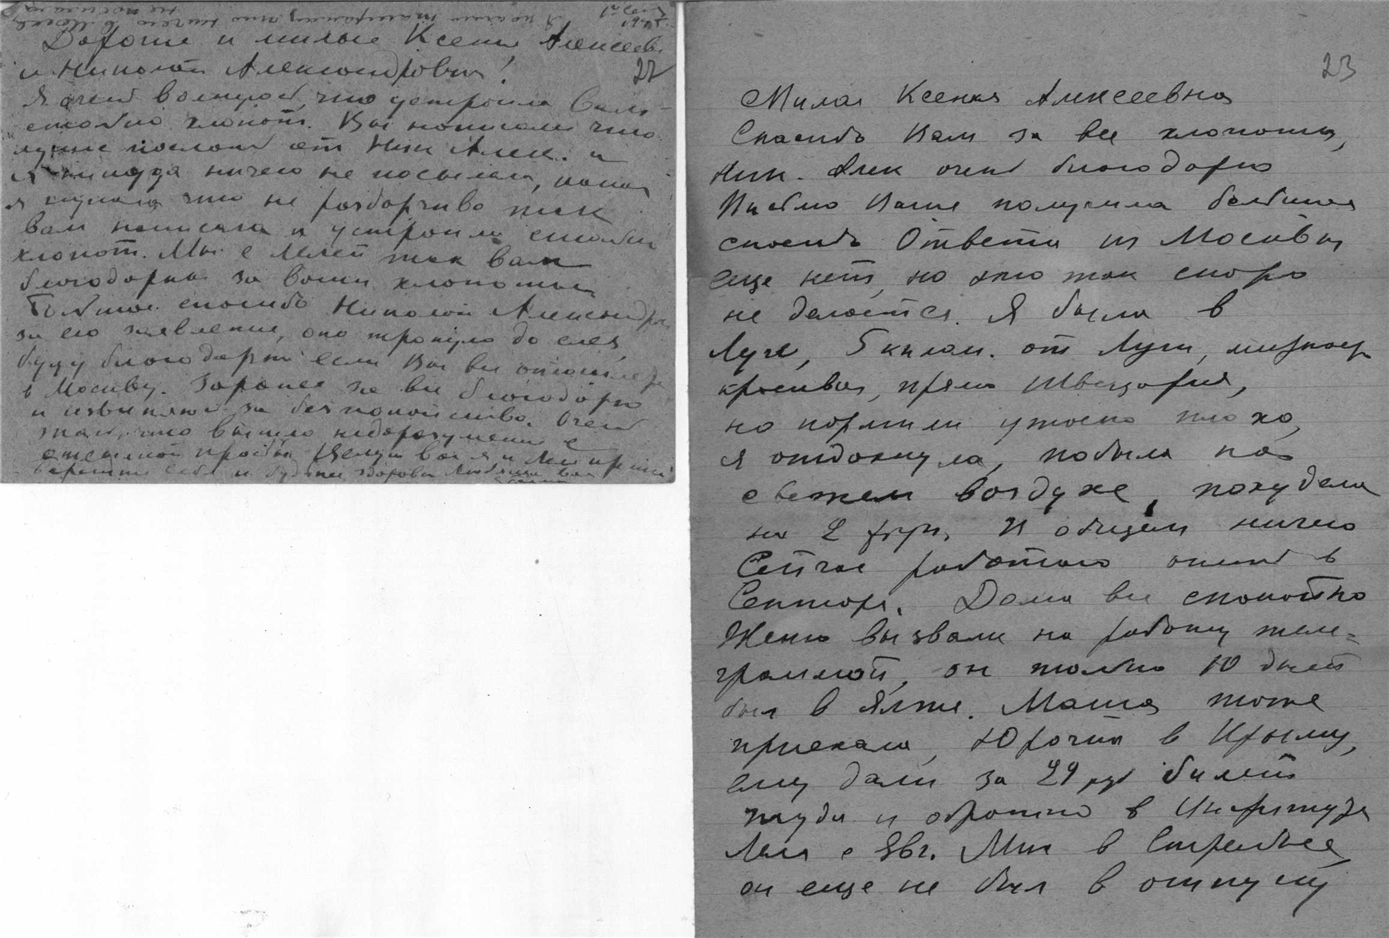 22
Дорогие и милые Ксения Алексеев.
и Николай Александрович!
Я очень волнуюсь, что устроила Вам
столько хлопот. Вы написали что
лучше послать от Ник Алек. и
я никуда ничего не посылала,
я что не разборчиво так
вам написала и устроила столько
хлопот. Мы с Лелей так вам
благодарны за ваши хлопоты
Большое спасибо Николаю Александр.
за его заявление, оно тронуло до слез,
буду благодарна если Вы все отошлете
в Москву. Заранее за все благодарю
и извиняюсь за безпокойство. Очень
жаль, что вышло недоразумение с
просьбой Целую вас я и Леля
себя и будьте здоровы Любящая вас
23
Милая Ксения Алексеевна
Спасибо Вам за все хлопоты,
Ник. Алек очень благодарю
Письмо Ваше получила большое
спасибо Ответа из Москвы
еще нет, но это так скоро
не делается. Я была в
Луге, 5 килом. от Луги, местность
красивая, прямо Швейцария,
но кормили ужасно плохо,
я отдохнула, побыла на
свежем воздухе, похудела
на 2 фун. И общем ничего
Сейчас работаю опять в
Секторе. Дома все спокойно
Женю вызвали на работу теле-
граммой, он только 10 дней
был в Ялте. Маша тоже
приехала, Юрочка в Крыму,
ему дали за 29 руб билет
туда и обратно в Институте
Леля с Евг. Мих в Стрельне,
он еще не был в отпуску